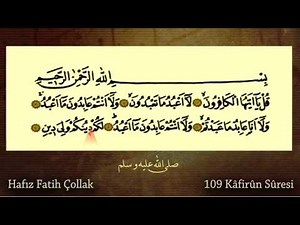 بِسْمِ اللهِ الرَّحْمٰنِ الرَّحِيمِ
قُلْ يَا أَيُّهَا الْكَافِرُونَ لَا أَعْبُدُ مَا تَعْبُدُونَ وَلَا أَنْتُمْ عَابِدُونَ مَا أَعْبُدُ
وَلَا أَنَا عَابِدٌ مَا عَبَدْتُمْ وَلَا أَنْتُمْ عَابِدُونَ مَا أَعْبُدُ لَكُمْ دِينُكُمْ وَلِيَ دِينِ
صلى الله عليه وسلم
Hafız Fatih Çollak 109 Kâfirûn Sûresi